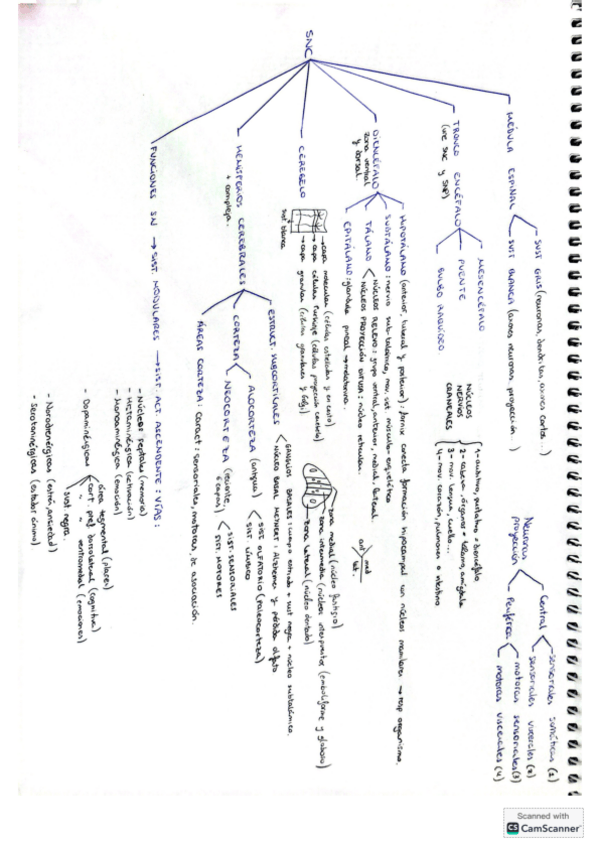 SNC
MÉDULA ESPINAL
SUST GRIS (neuronas, dendritas, axones cortos...)
SUST BLANCA (axones neuronas proyección...)
Neuronas proyección
Central
sensoriales somáticas (1)
sensoriales viscerales (2)
Periférica
motoras sensoriales (3)
motoras viscerales (4)
TRONCO ENCÉFALO
(une SNC y SNP)
MESENCÉFALO
PUENTE
BULBO RAQUÍDEO
NÚCLEOS
NERVIOS
CRANEALES
2- cabeza, órganos → tálamo, amígdala
3- mov. lengua, cuello...
4- mov. corazón, pulmones e intestino
DIENCÉFALO
zona ventral
y dorsal.
HIPOTÁLAMO (anterior, lateral y posterior): fornix conecta formación hipocampal con núcleos mamilares → resp organismo.
SUBTÁLAMO: nervio sub-talámico, mov. vol. músculo esquelético
TÁLAMO
NÚCLEOS RELEVO: grupo ventral, anterior, medial, lateral.
NÚCLEOS PROYECCIÓN DIFUSA: núcleo reticular.
ant
med
lat.
EPITÁLAMO: glándula pineal → melatonina.
CEREBELO
capa molecular (células estrelladas y en cesto)
capa células Purkinje (células proyección cerebelo)
capa granular (células granulares y Golgi)
sust blanca
zona medial (núcleo fastigio)
zona intermedia (núcleos interpuestos (emboliforme y globoso)
zona lateral (núcleo dentado)
HEMISFERIOS CEREBRALES
+ complejo.
ESTRUCT. SUBCORTICALES
GANGLIOS BASALES: cuerpo estriado + sust negra + núcleo subtalámico.
NÚCLEO BASAL MEYNERT: Alzheimer y pérdida olfato
CORTEZA
ALOCORTEZA
(antigua)
SIST OLFATORIO (paleocorteza)
SIST LÍMBICO
NEOCORTEZA
(reciente,
6 capas)
SIST. SENSORIALES
SIST. MOTORES
ÁREAS CORTEZA: Caract: sensoriales, motoras, de asociación.
FUNCIONES SN → SIST. MODULARES → SIST. ACT. ASCENDENTE: VÍAS:
- Núcleos Septales (memoria)
- Histaminérgica (activación)
- Monoaminérgica (emoción)
- Dopaminérgicas
área tegmental (placer)
cort. pref dorsolateral (cognitiva)
" " ventromedial (emociones)
sust negra.
- Noradrenérgicas (estrés, ansiedad)
- Serotoninérgicas (estados ánimo)
Scanned with
CS CamScanner